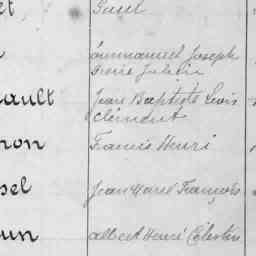 et Paul
Emmanuel Joseph
Irené Julien
ault Jean Baptiste Louis
Clément
non Francis Henri
sel Jean Marie François
un albert Henri Célestin